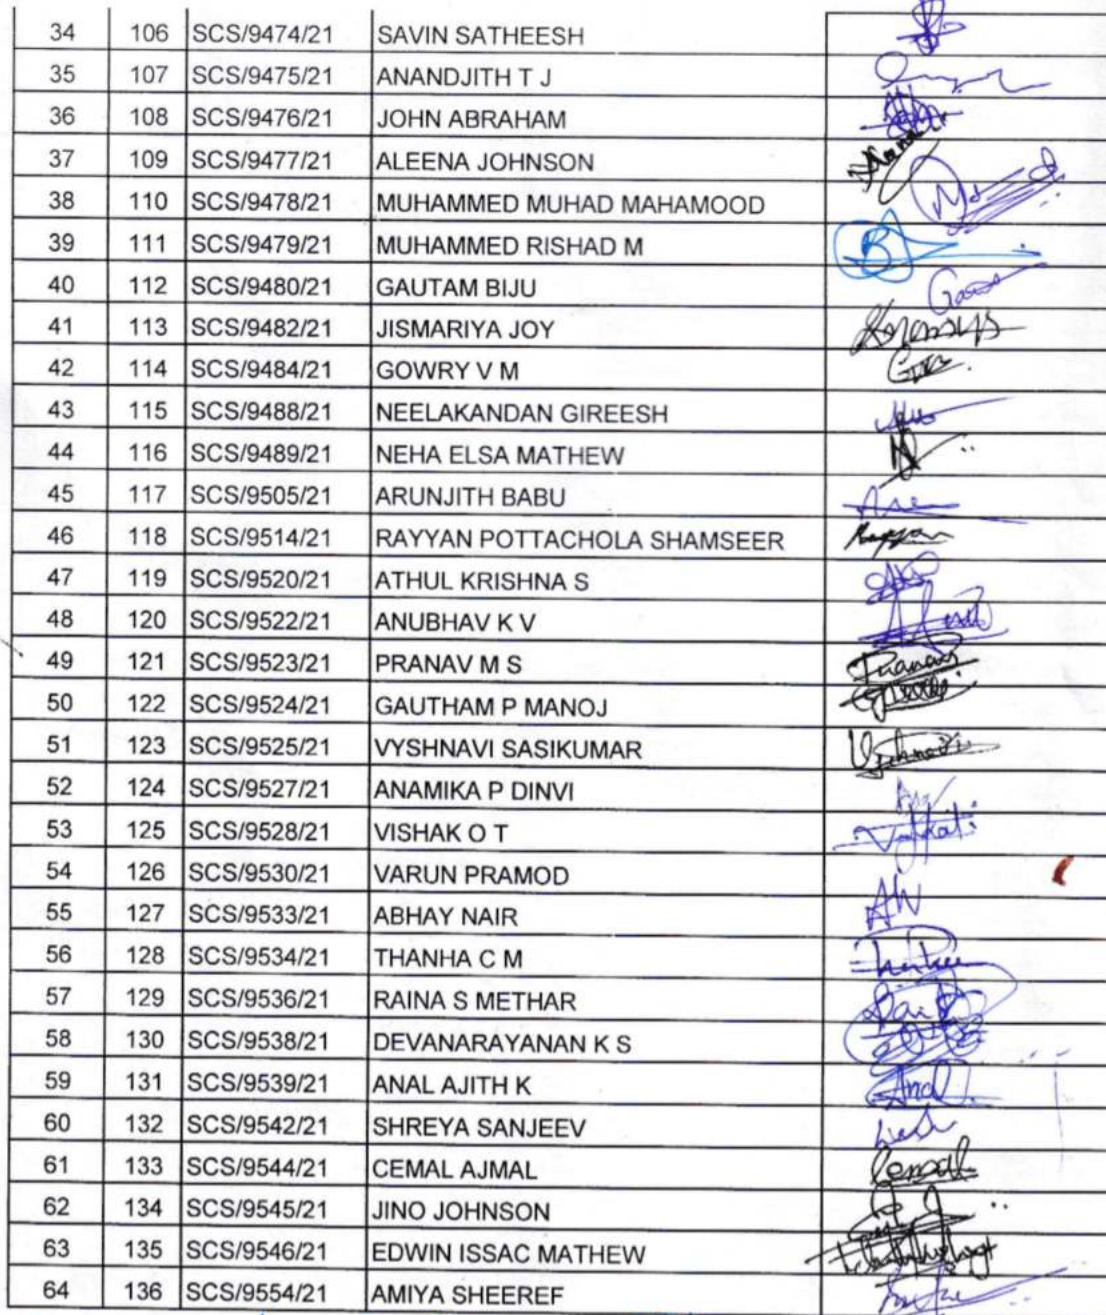 34 106 SCS/9474/21 SAVIN SATHEESH
35 107 SCS/9475/21 ANANDJITH T J
36 108 SCS/9476/21 JOHN ABRAHAM
37 109 SCS/9477/21 ALEENA JOHNSON
38 110 SCS/9478/21 MUHAMMED MUHAD MAHAMOOD
39 111 SCS/9479/21 MUHAMMED RISHAD M
40 112 SCS/9480/21 GAUTAM BIJU
41 113 SCS/9482/21 JISMARIYA JOY
42 114 SCS/9484/21 GOWRY V M
43 115 SCS/9488/21 NEELAKANDAN GIREESH
44 116 SCS/9489/21 NEHA ELSA MATHEW
45 117 SCS/9505/21 ARUNJITH BABU
46 118 SCS/9514/21 RAYYAN POTTACHOLA SHAMSEER Rayyan
47 119 SCS/9520/21 ATHUL KRISHNA S
48 120 SCS/9522/21 ANUBHAV K V
49 121 SCS/9523/21 PRANAV M S Pranav
50 122 SCS/9524/21 GAUTHAM P MANOJ
51 123 SCS/9525/21 VYSHNAVI SASIKUMAR Vyshnavi
52 124 SCS/9527/21 ANAMIKA P DINVI
53 125 SCS/9528/21 VISHAK O T
54 126 SCS/9530/21 VARUN PRAMOD
55 127 SCS/9533/21 ABHAY NAIR
56 128 SCS/9534/21 THANHA C M
57 129 SCS/9536/21 RAINA S METHAR
58 130 SCS/9538/21 DEVANARAYANAN K S
59 131 SCS/9539/21 ANAL AJITH K Anal
60 132 SCS/9542/21 SHREYA SANJEEV
61 133 SCS/9544/21 CEMAL AJMAL Cemal
62 134 SCS/9545/21 JINO JOHNSON
63 135 SCS/9546/21 EDWIN ISSAC MATHEW
64 136 SCS/9554/21 AMIYA SHEEREF